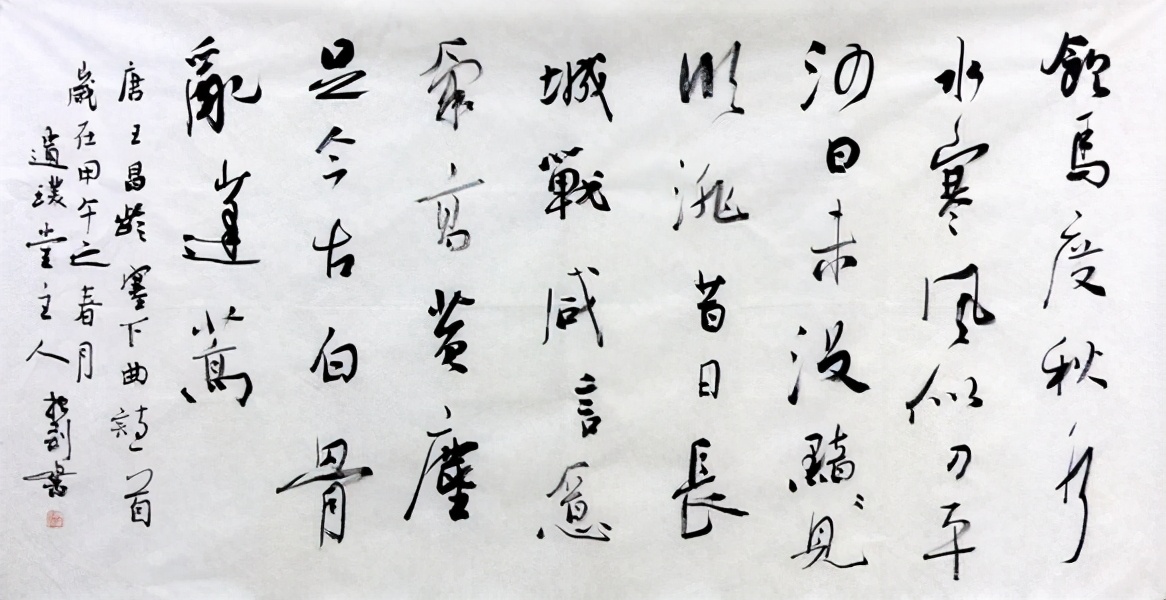 飲馬度秋水
水寒風似刀平
沙日未没黯〻見
臨洮昔日長
城戰咸言意
氣高黄塵
足今古白骨
亂蓬蒿
唐王昌齡塞下曲詩一首
歲在甲午之春月
遺璞堂主人劍書